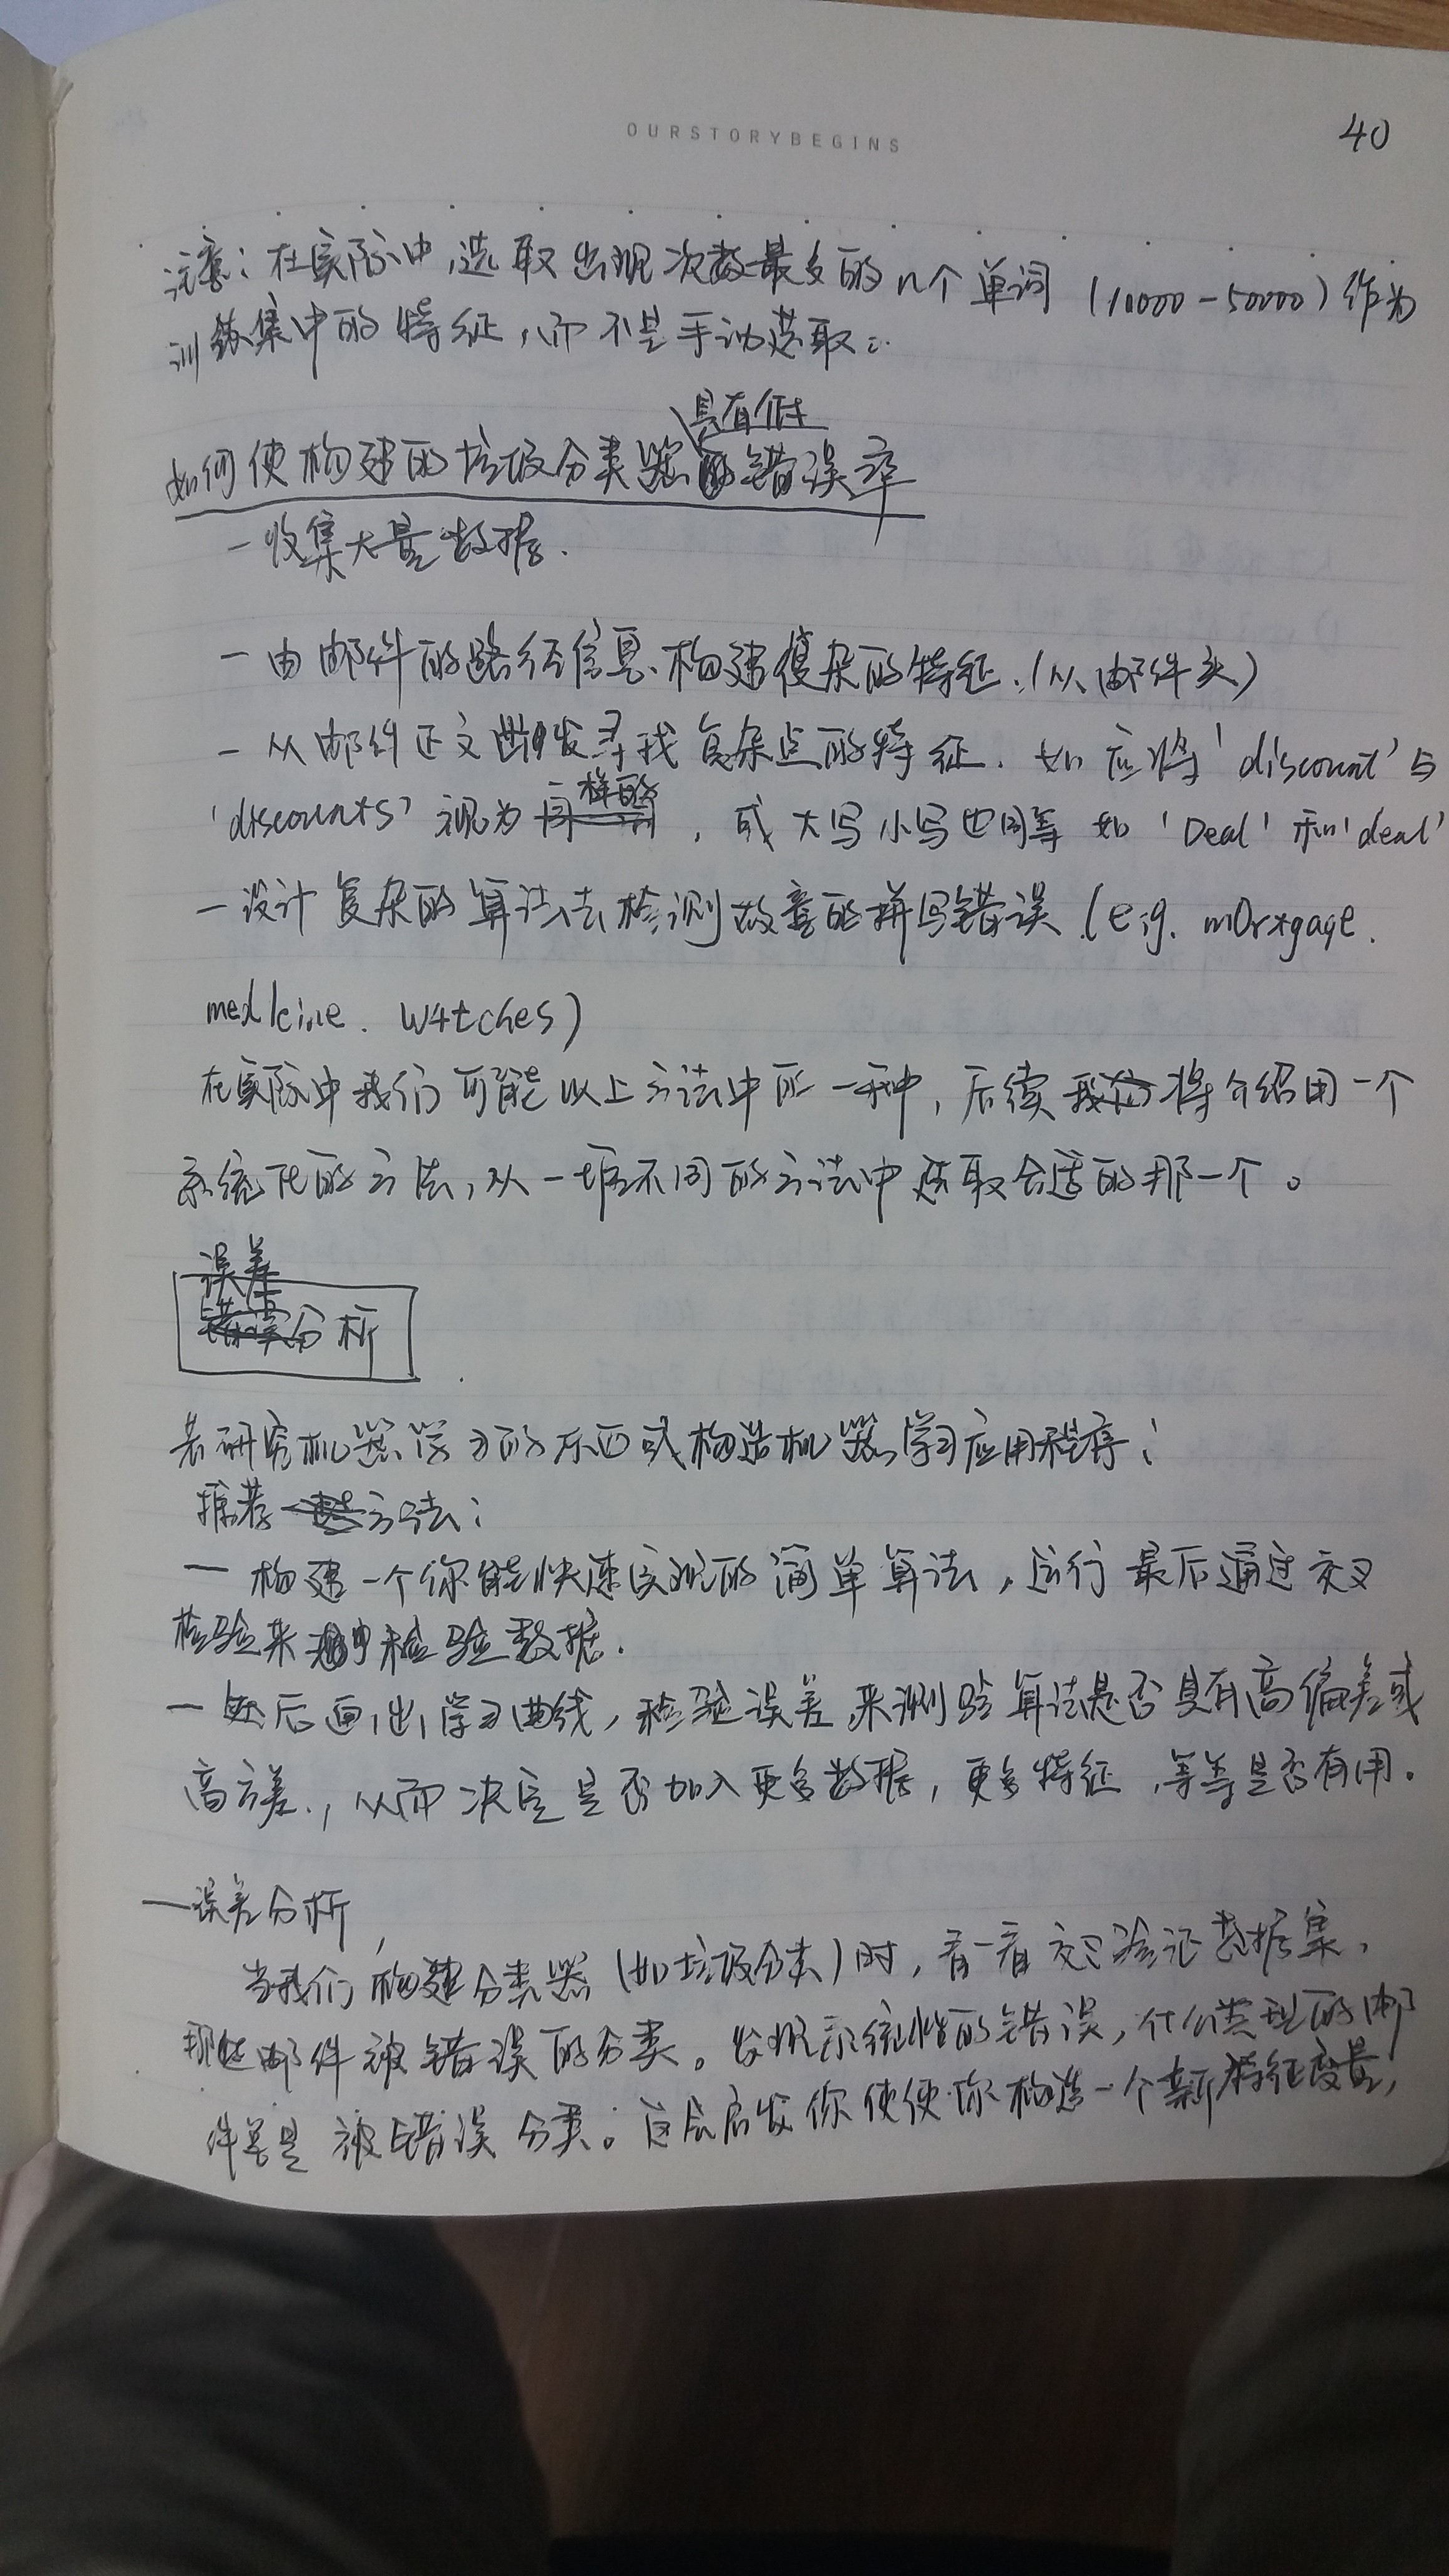 OURSTORYBEGINS
40
注意：在实际中，选取出现次数最多的n个单词（10000-50000）作为
训练集中的特征，而不是手动选取。
具有低
如何使构建的垃圾分类器错误率
一收集大量数据.
一由邮件的路径信息、构建复杂的特征.（从邮件头）
一从邮件正文出发寻找复杂点的特征. 如应将'discount'与
一样的
'discounts'视为，或大写小写也同等 如'Deal'和'deal'
一设计复杂的算法去检测故意的拼写错误（e.g. m0rtgage.
med1cine. w4tches)
在实际中我们可能以上方法中的一种，后续我们将介绍用一个
系统化的方法，从一堆不同的方法中选取合适的那一个。
误差
分析
若研究机器学习的东西或构造机器学习应用程序；
推荐方法：
一 构建一个你能快速实现的简单算法，运行最后通过交叉
检验来检验数据.
一然后画出学习曲线，检验误差，来测验算法是否具有高偏差或
高方差.，从而决定是否加入更多数据，更多特征，等等是否有用。
一误差分析
当我们构建分类器（如垃圾分类）时，看一看交叉验证数据集，
那些邮件被错误的分类。发现系统性的错误，什么类型的邮
件总是被错误分类。这会启发你使使你构造一个新特征变量，